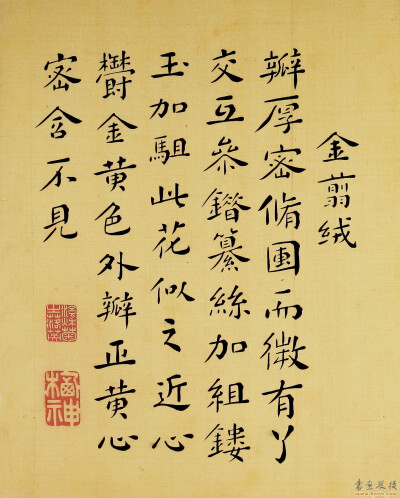 金翦絨
瓣厚密脩圓而微有丫
交互參鐕纂絲加組鏤
玉加駔此花似之近心
欝金黄色外瓣正黄心
密含不見